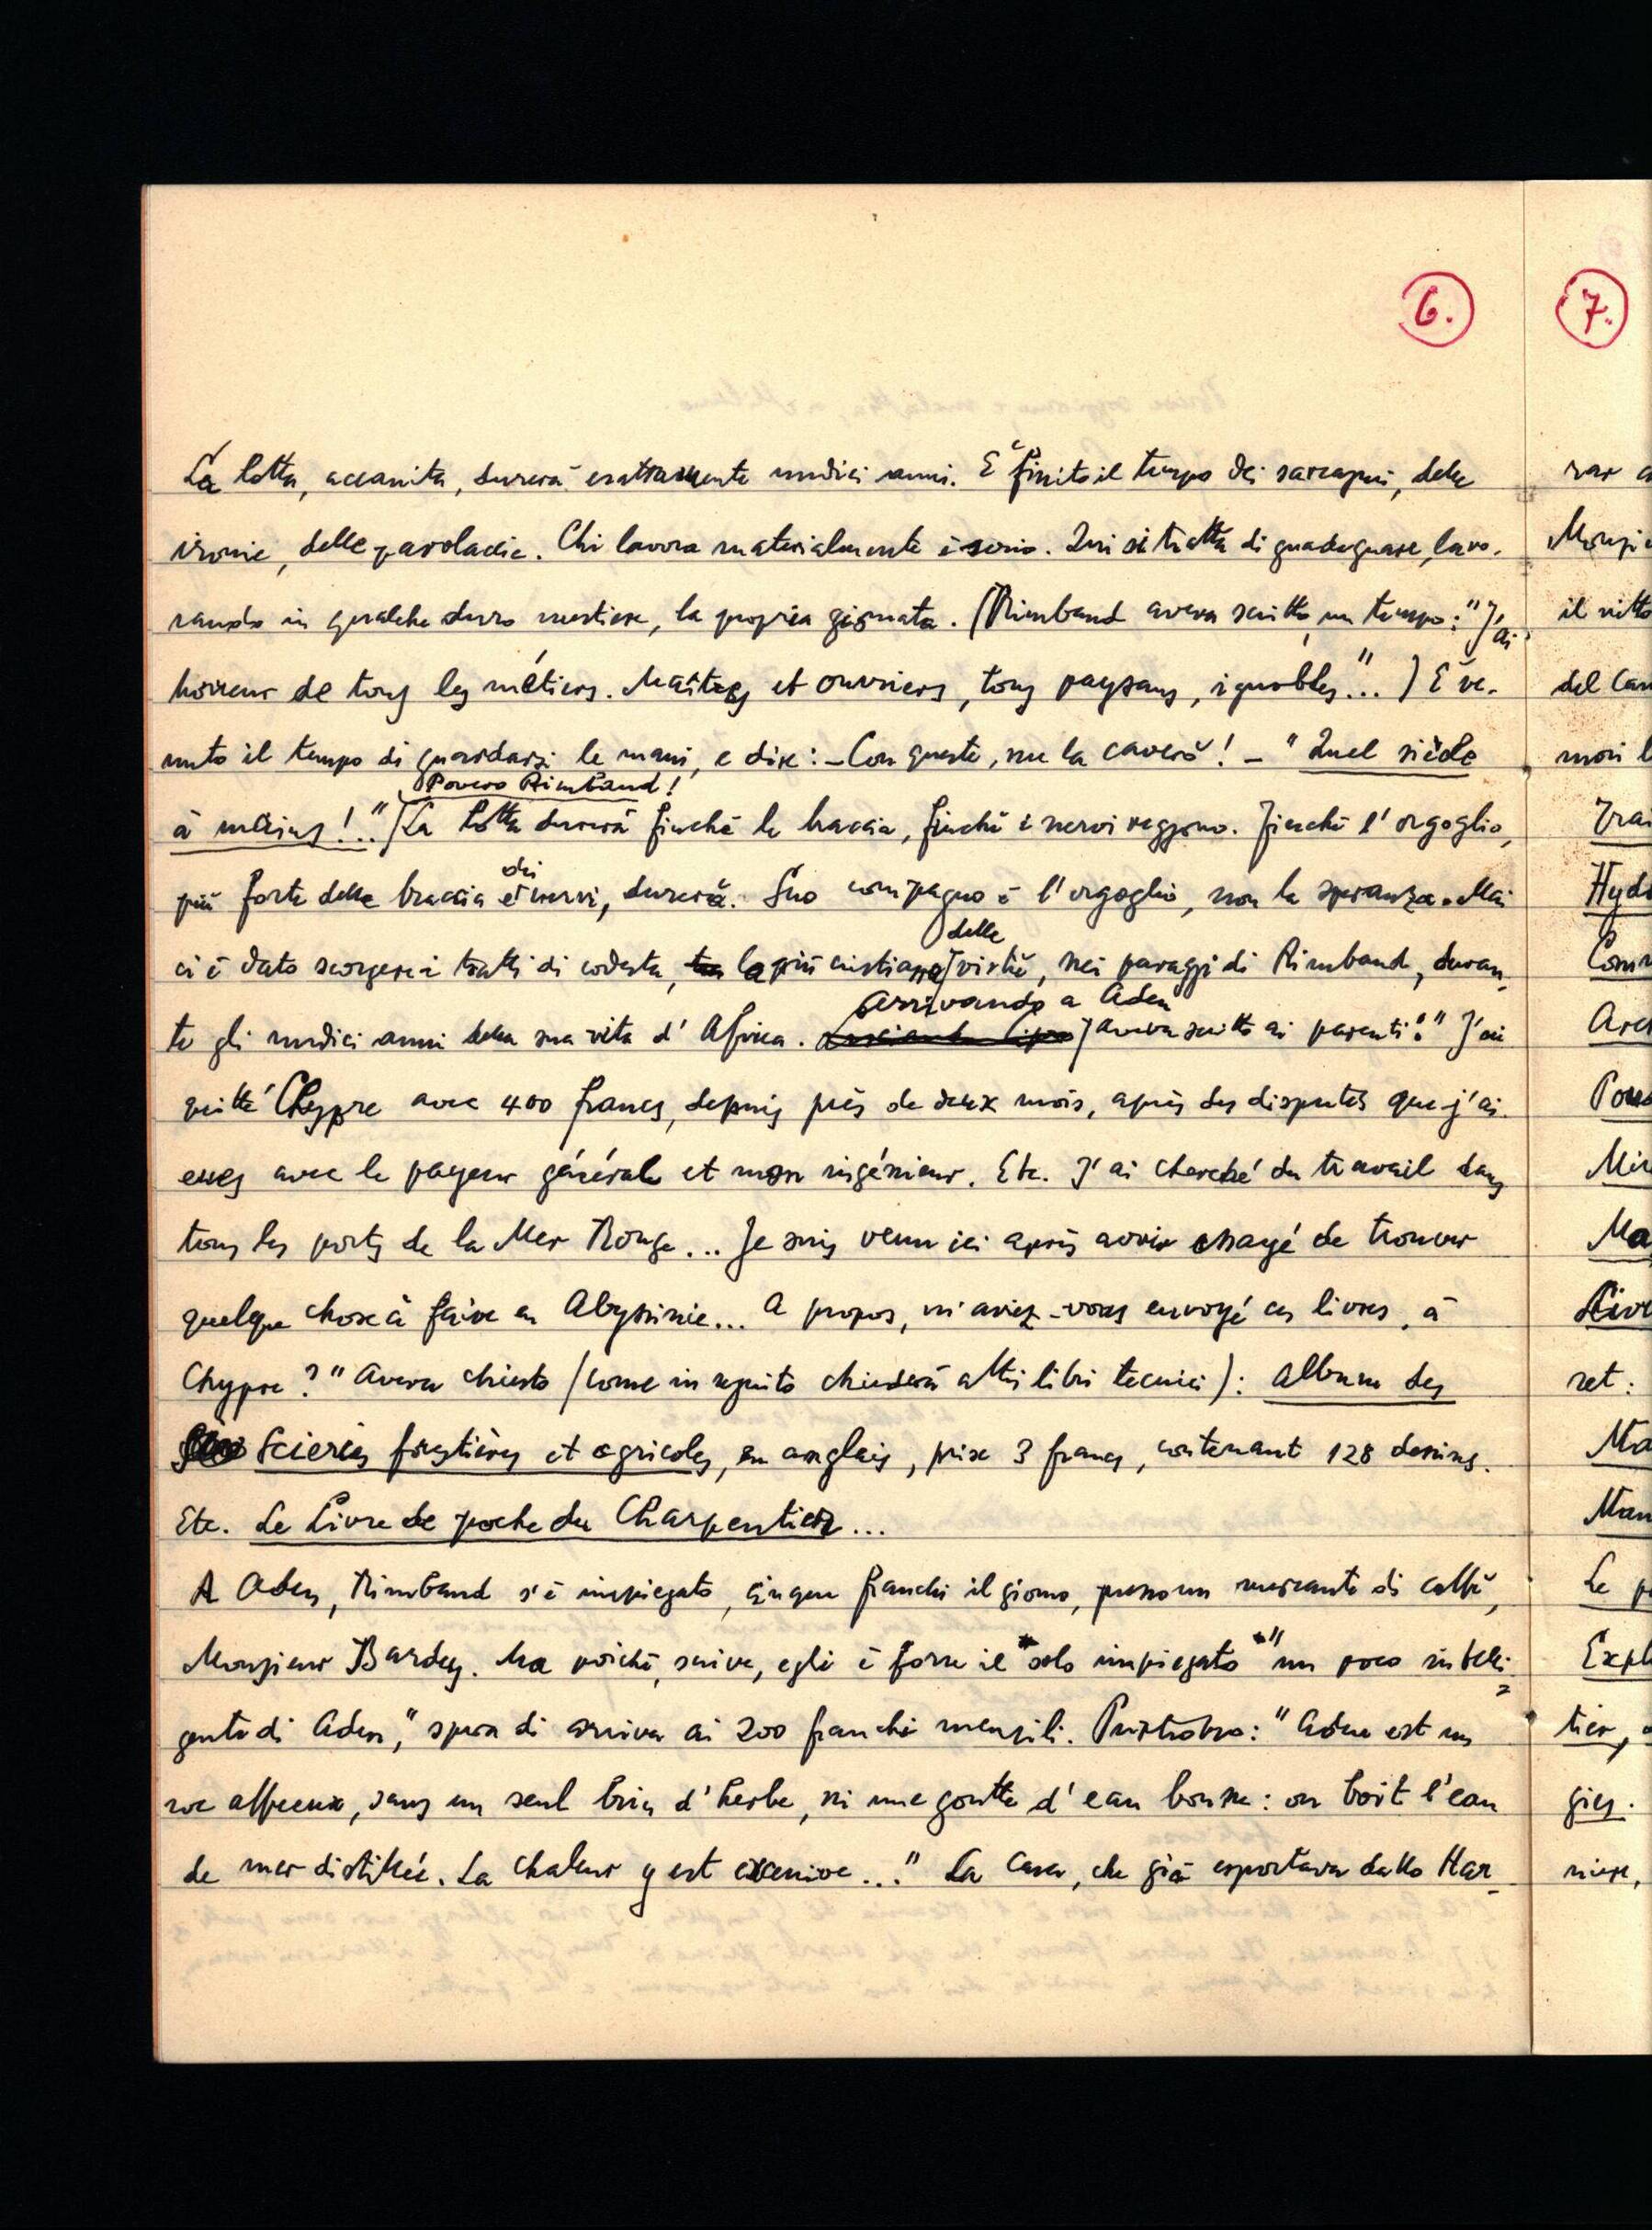 6.
La lotta, accanita, durerà esattamente undici anni. È finito il tempo dei sarcasmi, delle
ironie, delle parolacce. Chi lavora materialmente è serio. Qui si tratta di guadagnare, lavo-
rando in qualche duro mestiere, la propria giornata. (Rimbaud aveva scritto, un tempo: "J'ai
horreur de tous les métiers. Maîtres et ouvriers, tous paysans, ignobles"... ) È ve-
nuto il tempo di guardarsi le mani, e dire: - Con queste, me la caverò! - "Quel siècle
Povero Rimbaud!
à mains!.." La lotta durerà finché le braccia, finché i nervi reggono. Finché l'orgoglio,
dei
più forte delle braccia e nervi, durerà. Suo compagno è l'orgoglio, non la speranza. Mai
delle
ci è dato scorgere i tratti di codesta, la più cristiana virtù, nei paraggi di Rimbaud, duran-
arrivando a Aden
te gli undici anni della sua vita d'Africa. aveva scritto ai parenti: "J'ai
quitté Chypre avec 400 francs, depuis près de deux mois, après des disputes que j'ai
eues avec le payeur générale et mon ingénieur. Etc. J'ai cherché du travail dans
tous les ports de la Mer Rouge... Je suis venu ici après avoir essayé de trouver
quelque chose à faire en Abyssinie... A propos, m'aviez-vous envoyé ces livres, à
Chypre?" Aveva chiesto (come in seguito chiederà altri libri tecnici): Album des
Scieries forestières et agricoles, en anglais, prix 3 francs, contenant 128 dessins.
Etc. Le Livre de poche du Charpentier...
A Aden, Rimbaud s'è impiegato, cinque franchi il giorno, presso un mercante di caffè,
Monsieur Bardey. Ma poiché, scrive, egli è forse il "solo impiegato" un poco intelli-
gente di Aden," spera di arrivar ai 200 franchi mensili. Purtroppo: "Aden est un
roc affreux, sans un seul brin d'herbe, ni une goutte d'eau bonne: on boit l'eau
de mer distillée. La chaleur y est excessive..." La Casa, che già esportava dallo Har-
7.
il vitto
ret:
gies.